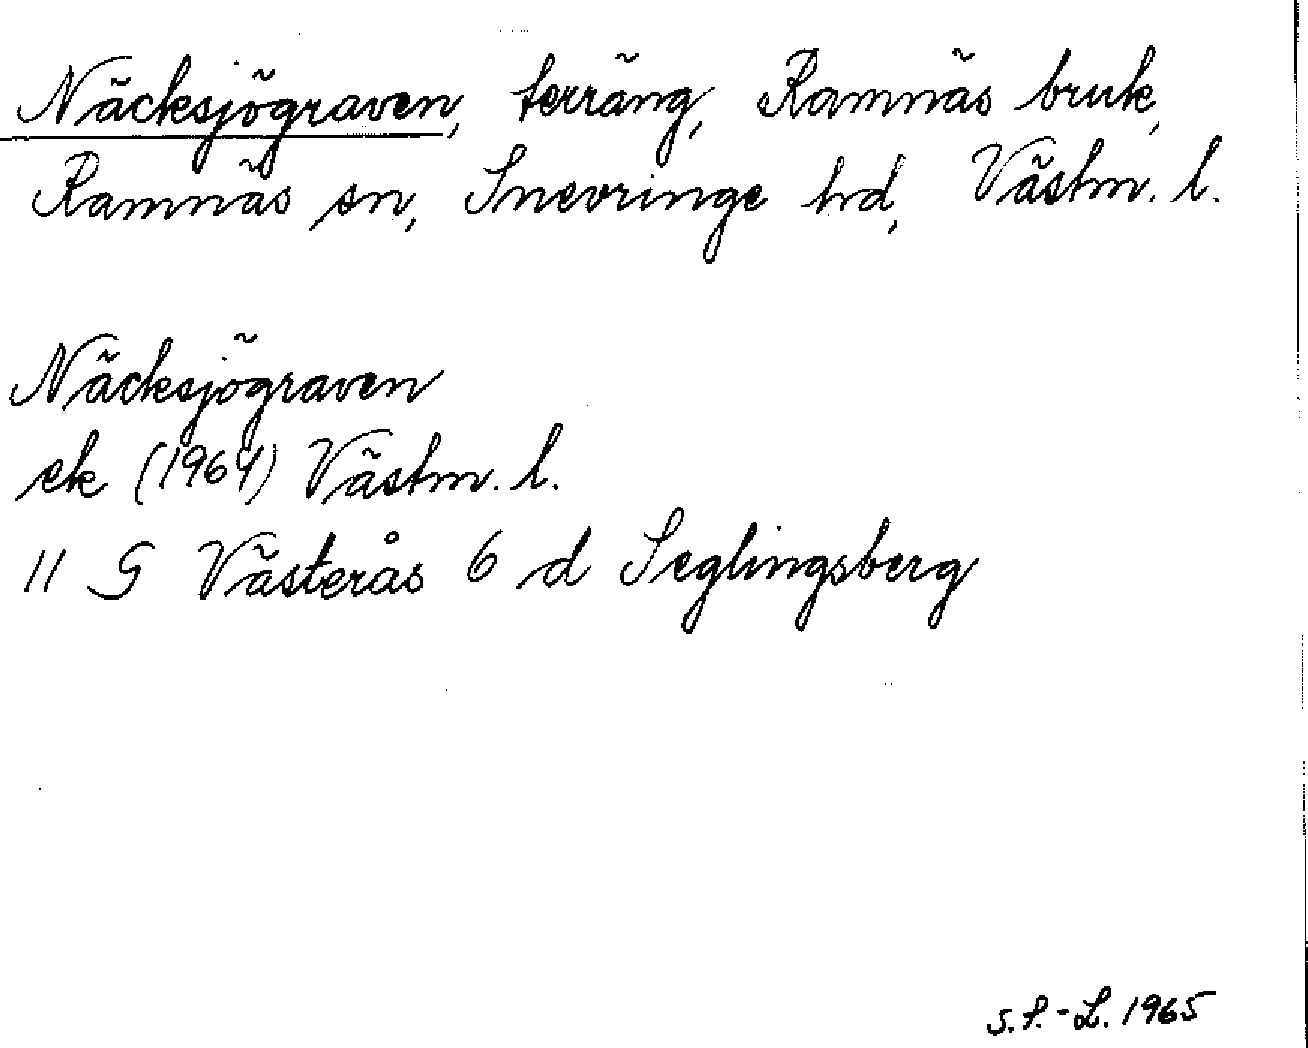 Näcksjögraven, terräng, Ramnäs bruk,
Ramnäs sn, Snevringe hd, Västm. l.
Näcksjögraven
ek (1964) Västm. l.
11 G Västerås 6 d Seglingsberg
S.P.-L. 1965